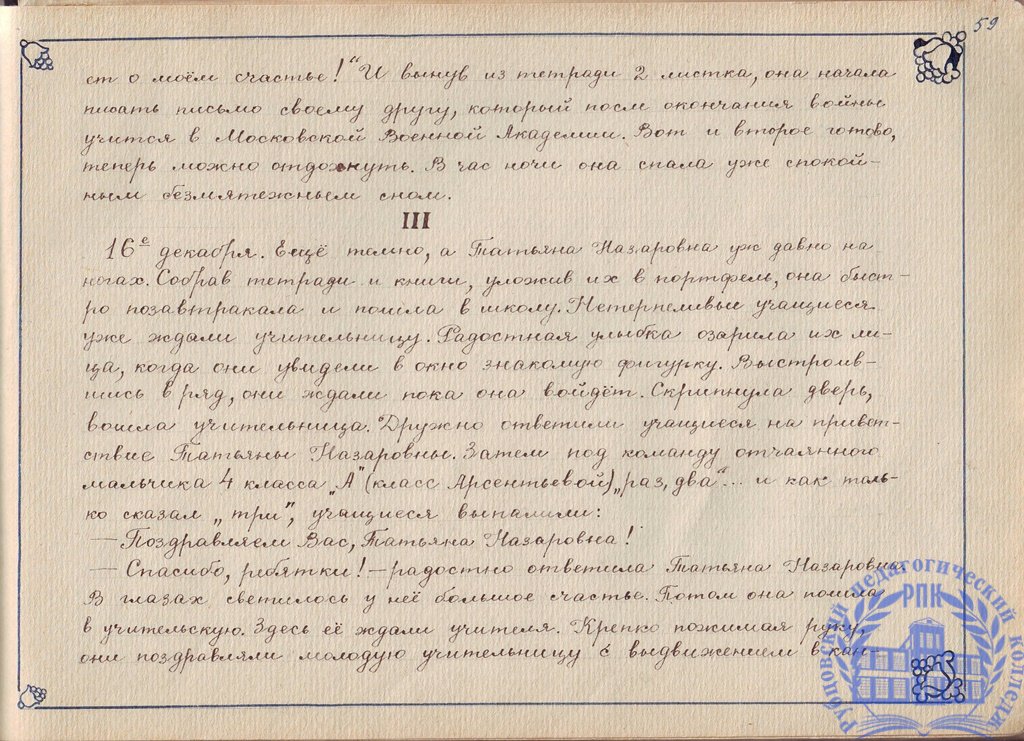 59
ет о моём счастье!“ И вынув из тетради 2 листка, она начала
писать письмо своему другу, который после окончания войны
учится в Московской Военной Академии. Вот и второе готово,
теперь можно отдохнуть. В час ночи она спала уже спокой-
ным безмятежным сном.
III
16е декабря. Ещё темно, а Татьяна Назаровна уж давно на
ногах. Собрав тетради и книги, уложив их в портфель, она быст-
ро позавтракала и пошла в школу. Нетерпеливые учащиеся
уже ждали учительницу. Радостная улыбка озарила их ли-
ца, когда они увидели в окно знакомую фигурку. Выстроив-
шись в ряд, они ждали пока она войдёт. Скрипнула дверь,
вошла учительница. Дружно ответили учащиеся на привет-
ствие Татьяны Назаровны. Затем под команду отчаянного
мальчика 4 класса „А“ (класс Арсентьевой) „раз, два“... и как толь-
ко сказал „три“, учащиеся выпалили:
— Поздравляем Вас, Татьяна Назаровна!
— Спасибо, ребятки! — радостно ответила Татьяна Назаровна.
В глазах светилось у неё большое счастье. Потом она пошла
в учительскую. Здесь её ждали учителя. Крепко пожимая руку,
они поздравляли молодую учительницу с выдвижением в кан-
Рубцовский педагогический колледж
РПК